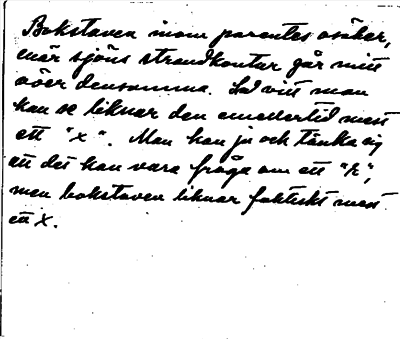 Bokstaven inom parentes osäker,
enär sjöns strandkontur går mitt
över densamma. Så vitt man
kan se liknar den emellertid mest
ett "x". Man kan ju och tänka sig
att det kan vara fråga om ett "k",
men bokstaven liknar faktiskt mest
ett X.